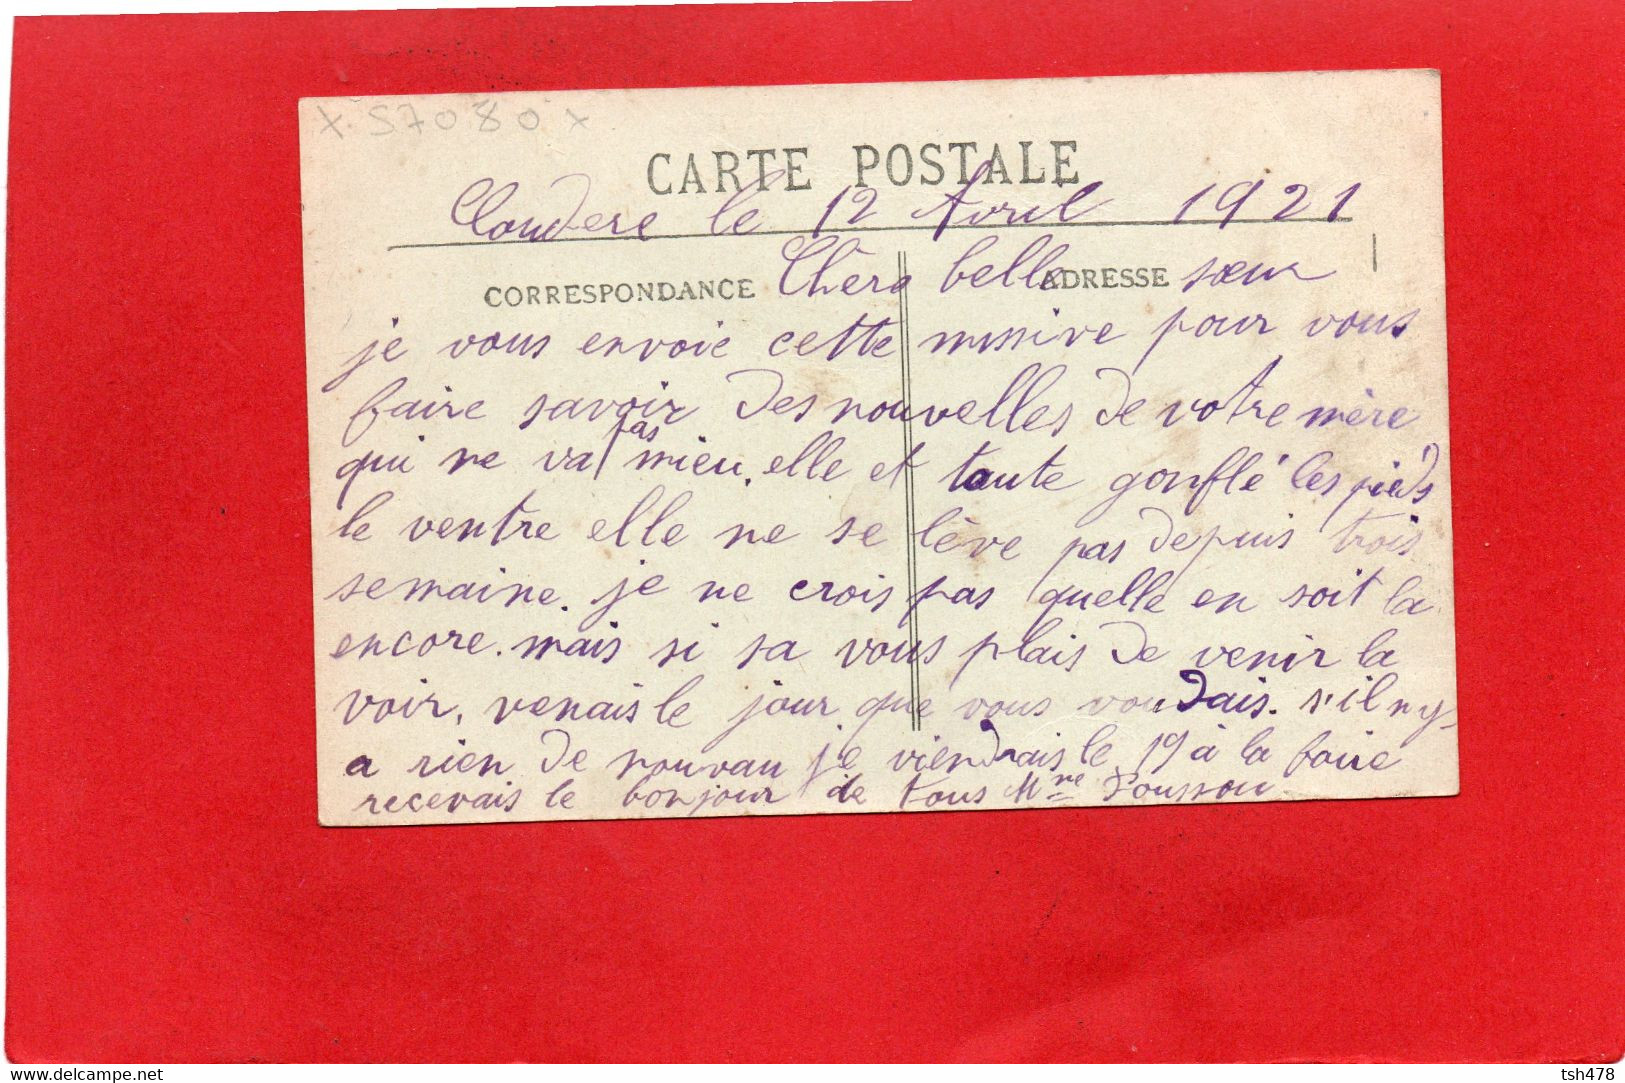 x S7080 x
CARTE POSTALE
le 12 Avril 1921
CORRESPONDANCE ADRESSE
Chère belle sœur
je vous envoie cette missive pour vous
faire savoir des nouvelles de votre mère
qui ne va pas mieu. elle et toute gonflé les pieds
le ventre elle ne se lève pas depuis trois
semaine. je ne crois pas quelle en soit la
encore. mais si sa vous plais de venir la
voir, venais le jour que vous voudais. s'il ny
a rien de nouvau je viendrais le 19 à la foire
recevais le bonjour de tous Mme
www.delcampe.net
tsh478